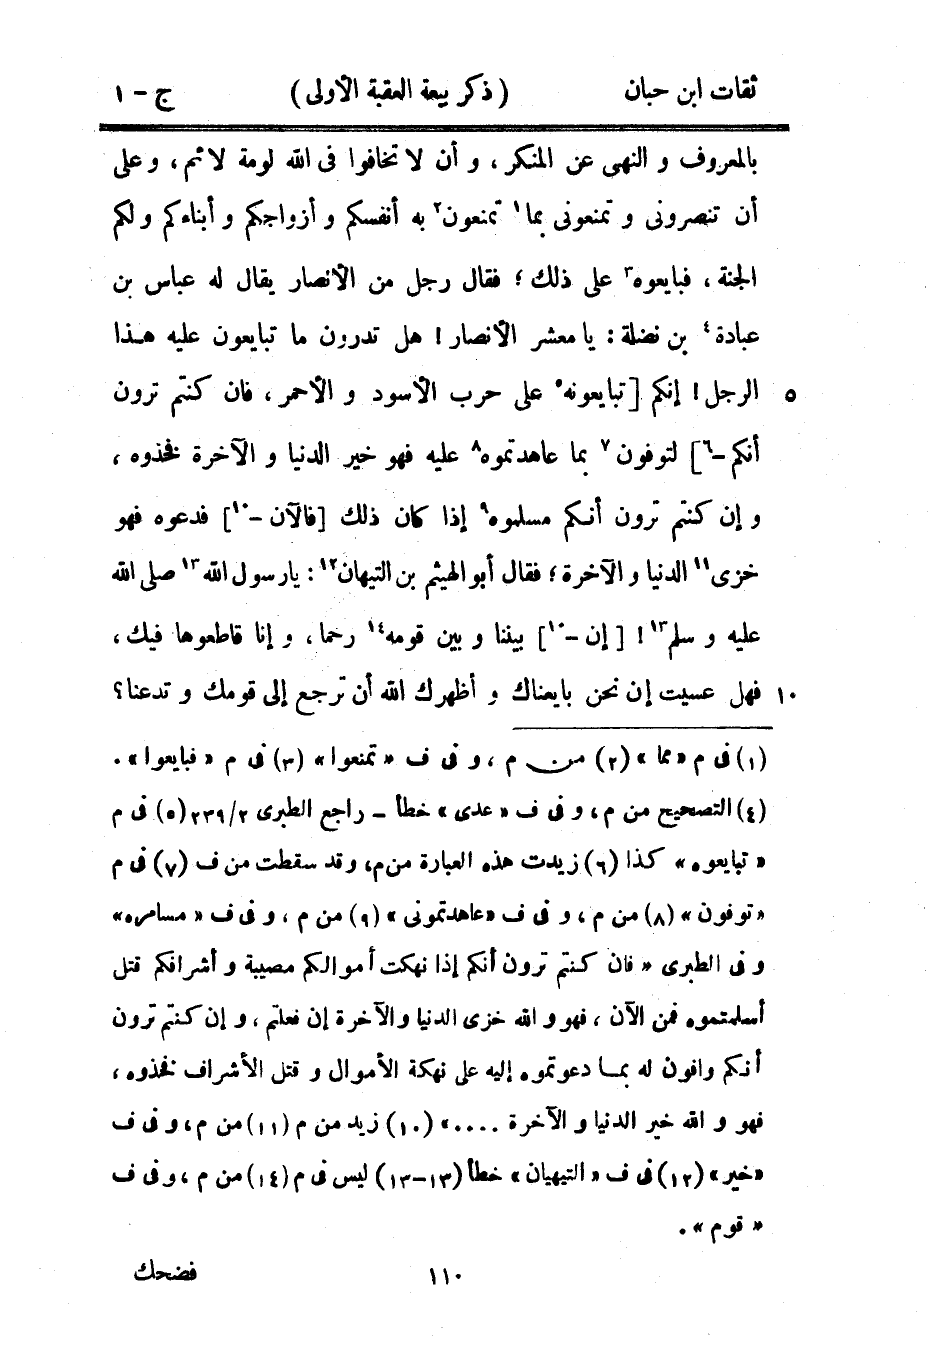 ثقات ابن حبان (ذكر بيعة العقبة الأولى) ج - ١
بالمعروف و النهى عن المنكر، و أن لا تخافوا فى الله لومة لائم، و على
أن تنصرونى و تمنعونى بما١ تمنعون٢ به أنفسكم و أزواجكم و أبناءكم و لكم
الجنة، فبايعوه٣ على ذلك؛ فقال رجل من الأنصار يقال له عباس بن
عبادة٤ بن نضلة: يا معشر الأنصار! هل تدرون ما تبايعون عليه هذا
٥ الرجل! إنكم [تبايعونه٥ على حرب الأسود و الأحمر، فان كنتم ترون
أنكم -٦] لتوفون٧ بما عاهدتموه٨ عليه فهو خير الدنيا و الآخرة فخذوه،
و إن كنتم ترون أنكم مسلموه٩ إذا كان ذلك [فالآن -١٠] فدعوه فهو
خزى١١ الدنيا و الآخرة؛ فقال أبو الهيثم بن التيهان١٢: يا رسول الله١٣ صلى الله
عليه و سلم١٣! [إن -١٠] بيننا و بين قومه١٤ رحما، و إنا قاطعوها فيك،
١٠ فهل عسيت إن نحن بايعناك و أظهرك الله أن ترجع إلى قومك و تدعنا؟
(١) فى م «مما» (٢) من م، و فى ف «تمنعوا» (٣) فى م «فبايعوا».
(٤) التصحيح من م، و فى ف «عدى» خطأ - راجع الطبرى ٢/٢٣٩ (٥) فى م
«تبايعوه» كذا (٦) زيدت هذه العبارة من م، وقد سقطت من ف (٧) فى م
«توفون» (٨) من م، و فى ف «عاهدتمونى» (٩) من م، و فى ف «مسامره»
و فى الطبرى «فان كنتم ترون أنكم إذا نهكت أموالكم مصيبة و أشرافكم قتل
أسلمتموه فمن الآن، فهو و الله خزى الدنيا والآخرة إن فعلتم، و إن كنتم ترون
أنكم وافون له بما دعوتموه إليه على نهكة الأموال و قتل الأشراف فخذوه،
فهو و الله خير الدنيا و الآخرة ....» (١٠) زيد من م (١١) من م، و فى ف
«خير» (١٢) فى ف «التيهيان» خطأ (١٣-١٣) ليس فى م (١٤) من م، و فى ف
«قوم».
١١٠ فضحك